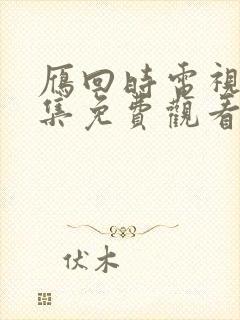 雁回時電視
集免費觀看
伏木